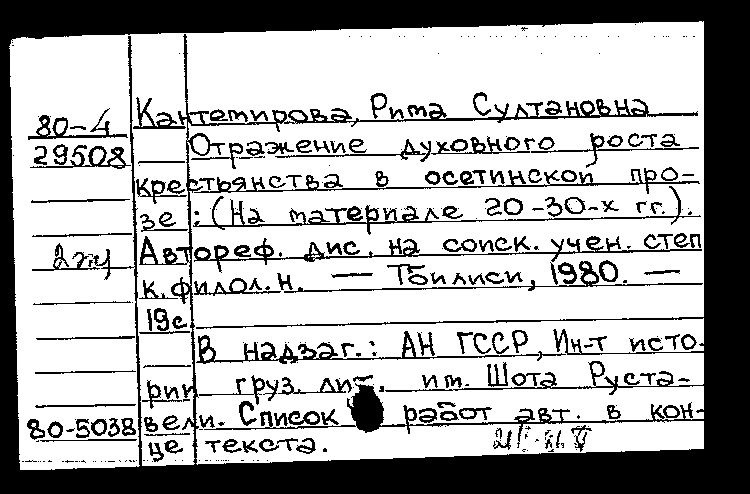 80-4 Кантемирова, Рима Султановна
29508 Отражение духовного роста
крестьянства в осетинской про-
зе : (На материале 20-30-х гг.).
Автореф. дис. на соиск. учен. степ
к. филол. н. — Тбилиси, 1980. —
19с
В надзаг.: АН ГССР, Ин-т исто-
рии груз. лит. им. Шота Руста-
80-5038 вели. Список работ авт. в кон-
це текста.